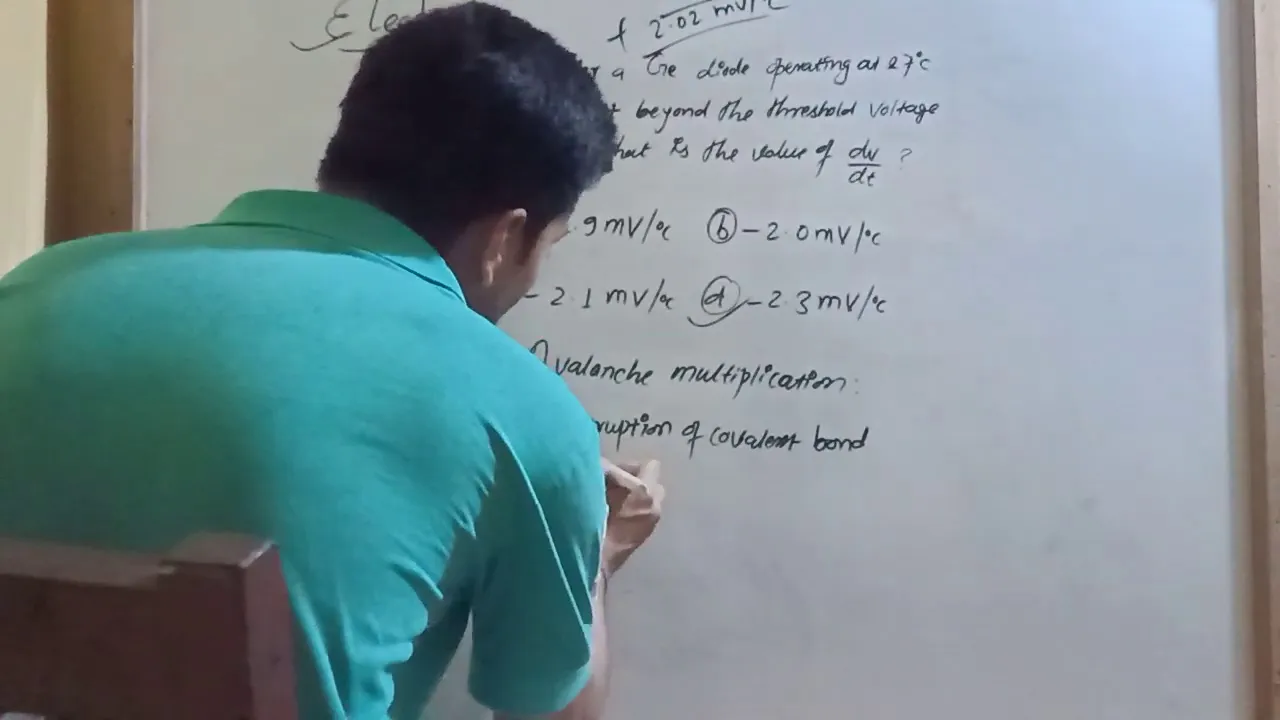 Elec
2.02 mV/°C
a Ge diode operating at 27°c
beyond the threshold voltage
hat is the value of dv/dt ?
.9 mV/°c (b) - 2.0 mV/°c
- 2.1 mV/°c (d) - 2.3 mV/°c
Avalanche multiplication:
ruption of covalent bond